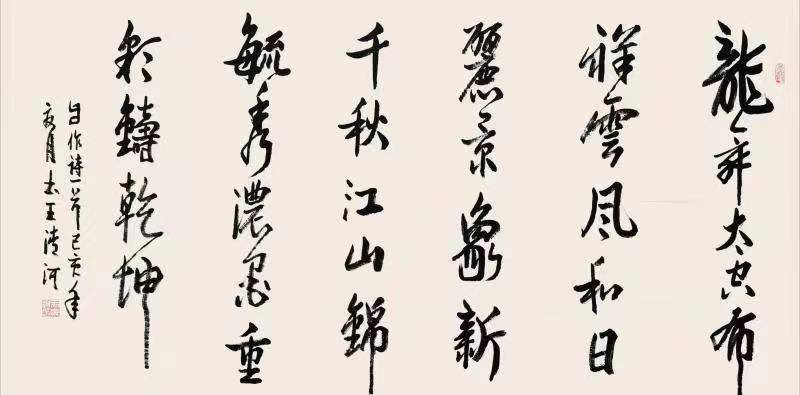 龍太空布
祥雲風和日
麗景象新
千秋江山錦
毓秀濃墨重
彩鑄乾坤
自作詩一首己亥年
夏月书王清河